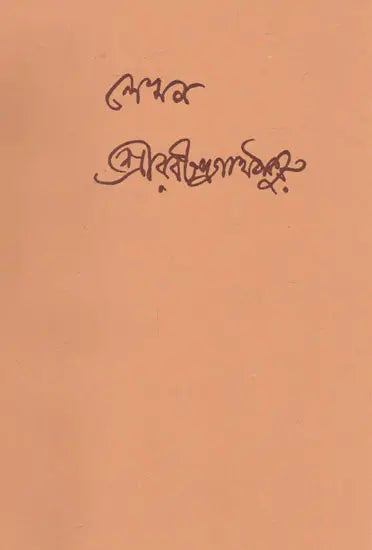 লেখন
শ্রীরবীন্দ্রনাথ ঠাকুর